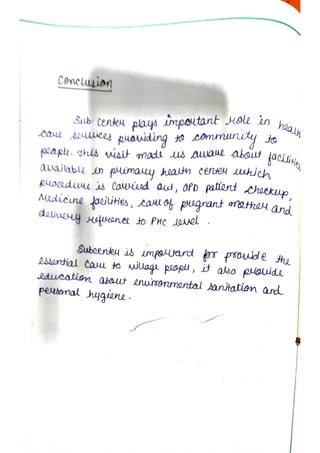 Conclusion
Sub-Center plays important role in health
care services providing to community to
people. This visit made us aware about facilities
available in primary health center which
procedure is carried out, OPD patient checkup,
Medicine facilities, care of pregnant mother and
delivery reference to PHC level.
Subcenter is important for provide the
essential care to village people, it also provide
education about environmental sanitation and
personal hygiene.